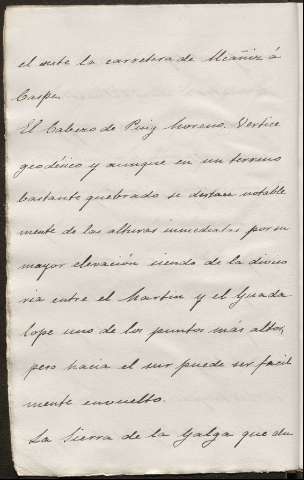 el este la carretera de Alcañiz á
Caspe.
El Cabezo de Puig Moreno. Vertice
geodésico y aunque en un terreno
bastante quebrado se destaca notable
mente de las alturas inmediatas por su
mayor elevación siendo de la diviso
ria entre el Martin y el Guada
lope uno de los puntos más altos,
pero hacia el sur puede ser facil
mente envuelto.
La Sierra de la Galga que du